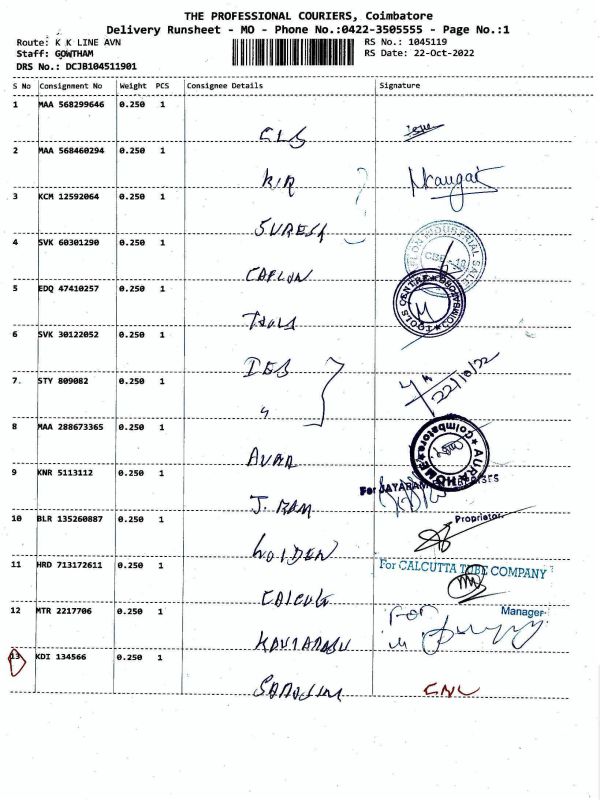 THE PROFESSIONAL COURIERS, Coimbatore
Delivery Runsheet - MO - Phone No.:0422-3505555 - Page No.:1
Route: K K LINE AVN
RS No.: 1045119
Staff: GOWTHAM
RS Date: 22-Oct-2022
DRS No.: DCJB104511901
S No Consignment No Weight PCS Consignee Details Signature
1 MAA 568299646 0.250 1
CLS
2 MAA 568460294 0.250 1
KIR
3 KCM 12592064 0.250 1
SURESH
4 SVK 60301290 0.250 1
CAPLON
5 EDQ 47410257 0.250 1
TOOLS CENTRE
TOOLS
6 SVK 30122052 0.250 1
7. STY 809082 0.250 1
22/10/22
8 MAA 288673365 0.250 1
AURA
AURAHOME
Coimbatore
9 KNR 5113112 0.250 1
For JAYARAM
J. RAM
10 BLR 135260887 0.250 1
Proprietor
GOLDEN
11 HRD 713172611 0.250 1
For CALCUTTA TUBE COMPANY
12 MTR 2217706 0.250 1
For
Manager
13 KDI 134566 0.250 1
CNL